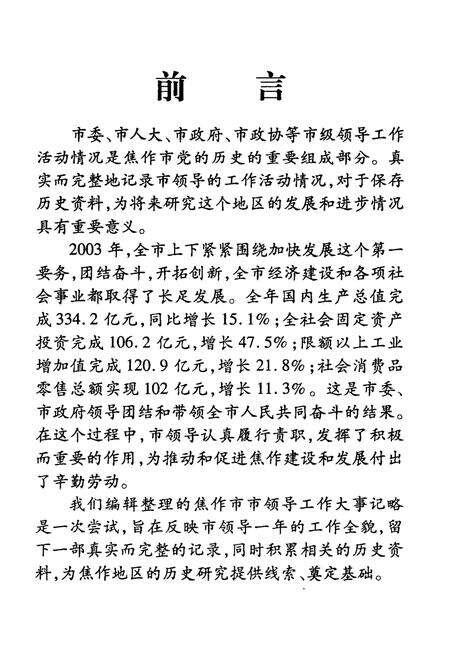 前 言
市委、市人大、市政府、市政协等市级领导工作
活动情况是焦作市党的历史的重要组成部分。真
实而完整地记录市领导的工作活动情况,对于保存
历史资料,为将来研究这个地区的发展和进步情况
具有重要意义。
2003 年,全市上下紧紧围绕加快发展这个第一
要务,团结奋斗,开拓创新,全市经济建设和各项社
会事业都取得了长足发展。全年国内生产总值完
成 334.2 亿元,同比增长 15.1%;全社会固定资产
投资完成 106.2 亿元,增长 47.5%;限额以上工业
增加值完成 120.9 亿元,增长 21.8%;社会消费品
零售总额实现 102 亿元,增长 11.3%。这是市委、
市政府领导团结和带领全市人民共同奋斗的结果。
在这个过程中,市领导认真履行责职,发挥了积极
而重要的作用,为推动和促进焦作建设和发展付出
了辛勤劳动。
我们编辑整理的焦作市市领导工作大事记略
是一次尝试,旨在反映市领导一年的工作全貌,留
下一部真实而完整的记录,同时积累相关的历史资
料,为焦作地区的历史研究提供线索、奠定基础。